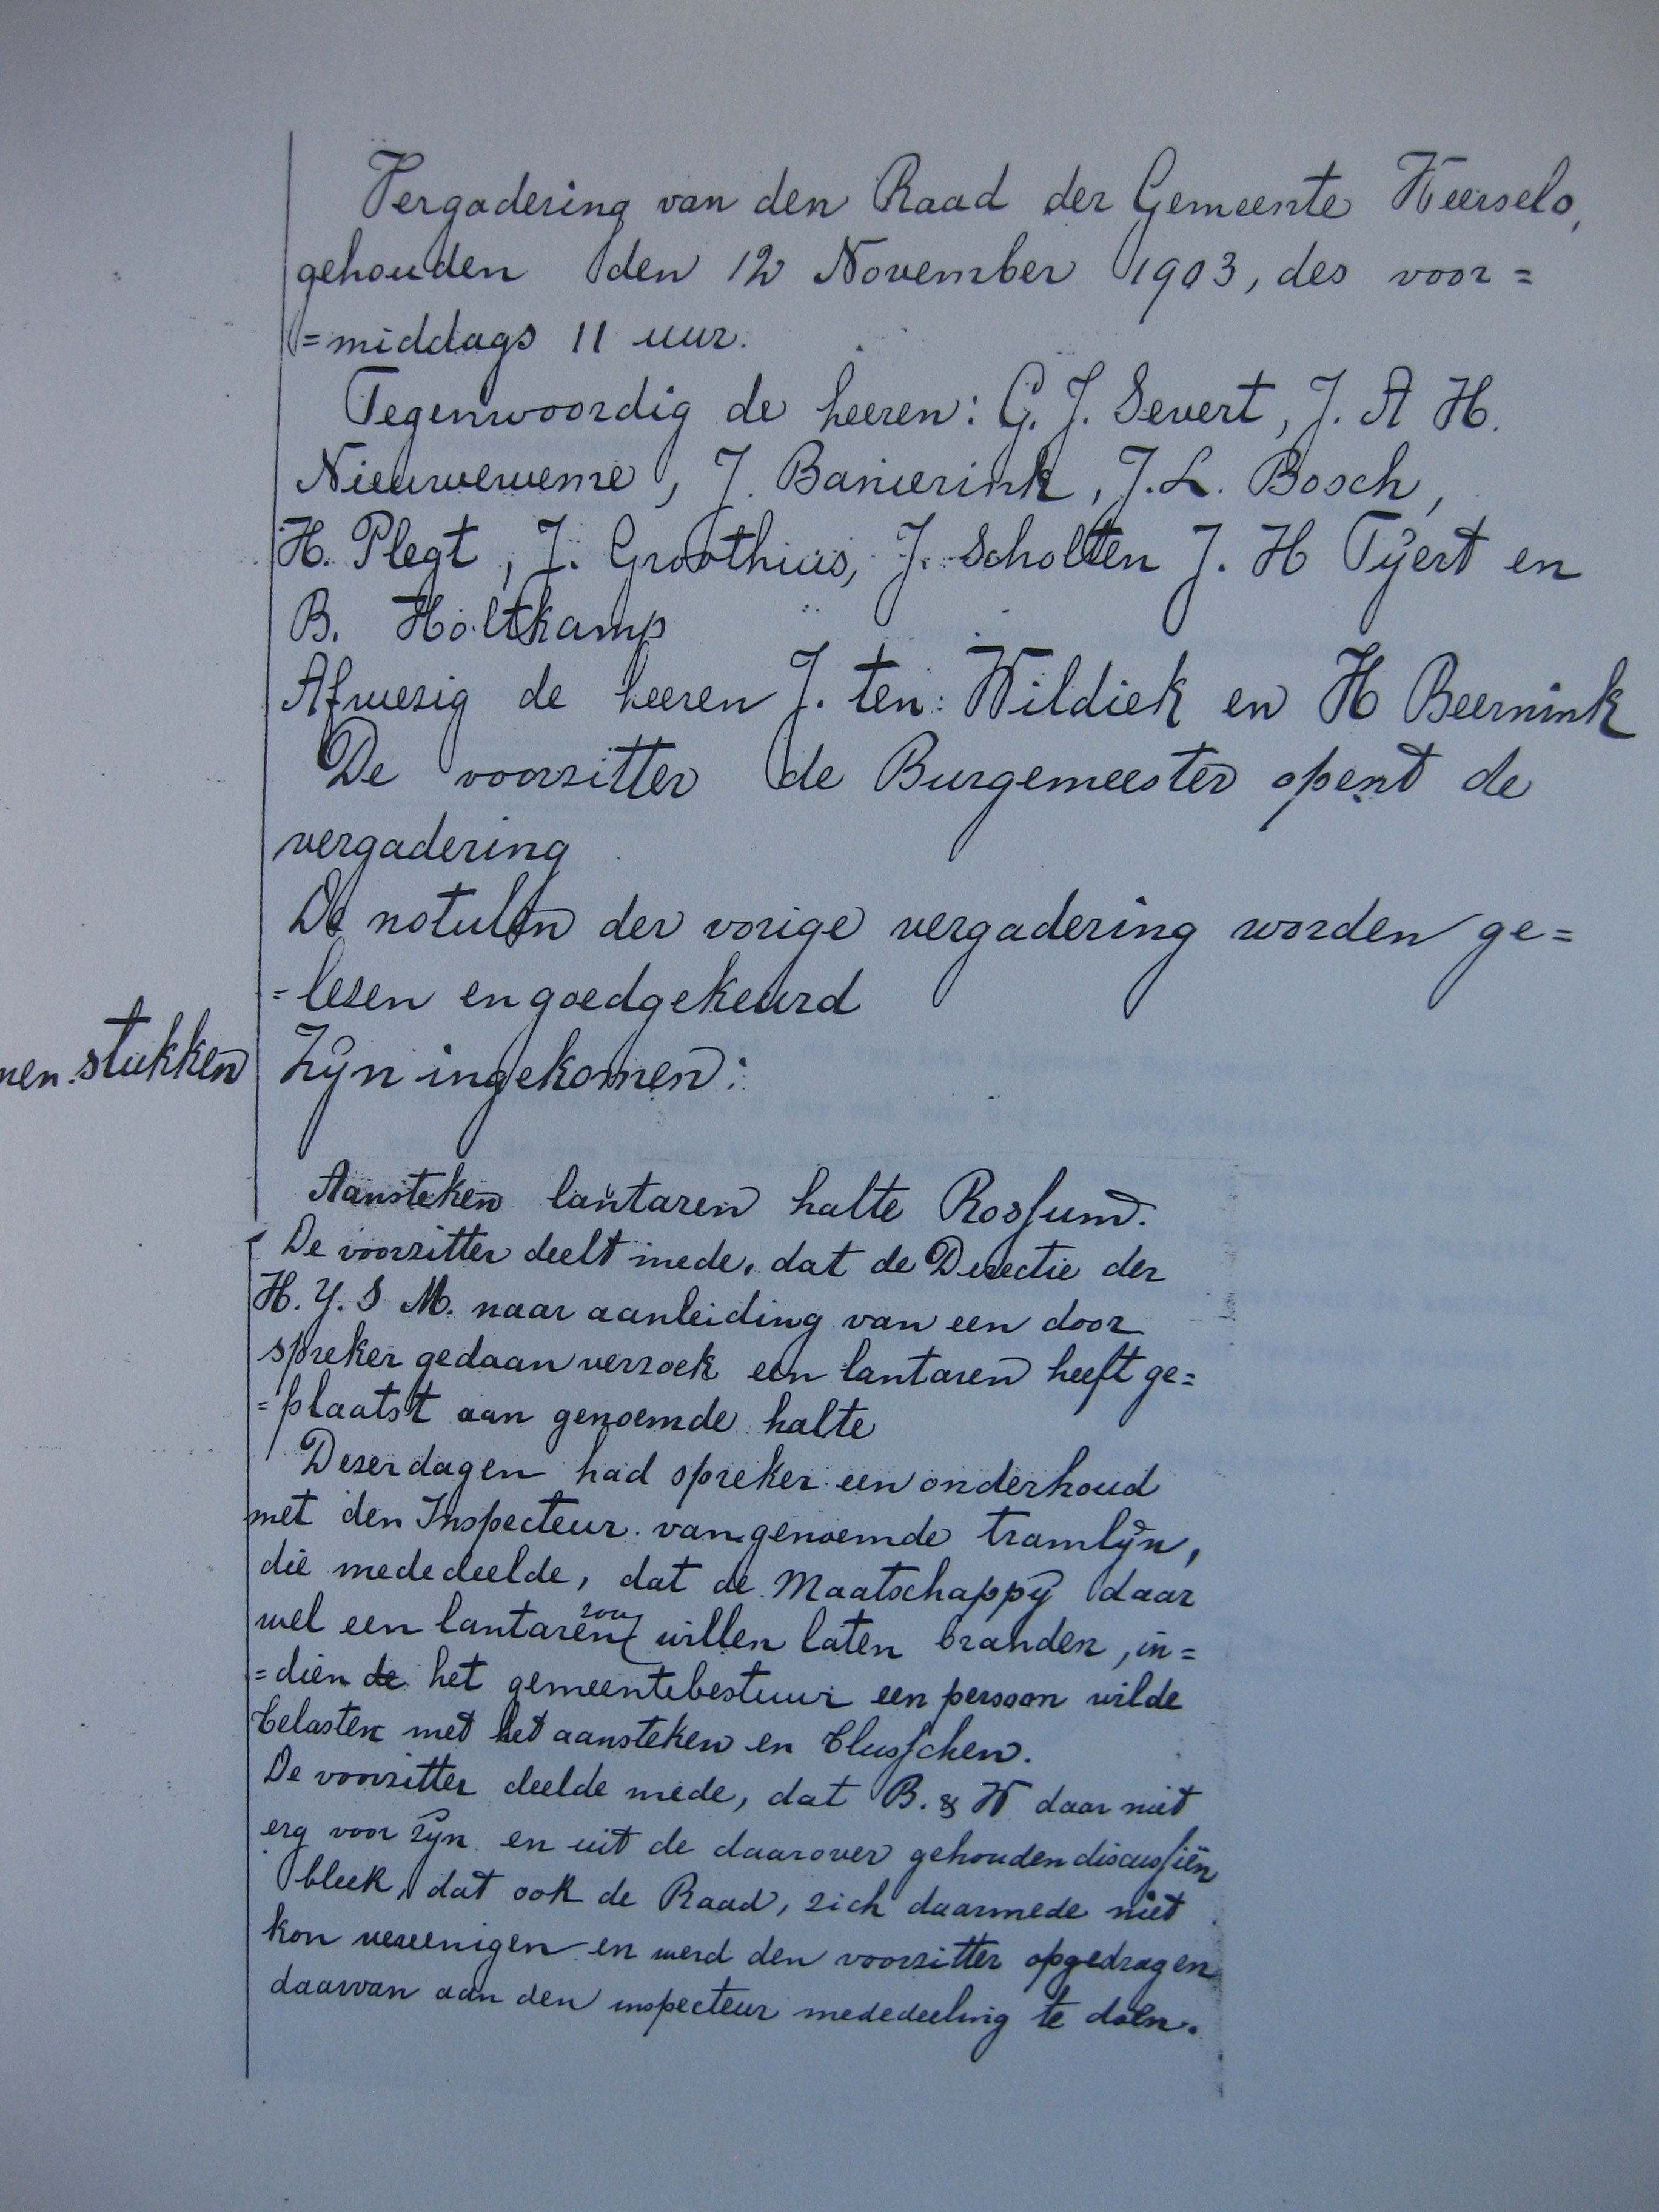 Vergadering van den Raad der Gemeente Weerselo,
gehouden den 12 November 1903, des voor=
=middags 11 uur.
Tegenwoordig de heeren: G. J. Severt, J. A H.
Nieuweweme, J. Banierink, J. L. Bosch,
H. Plegt, J. Groothuis, J. Scholten J. H Tijert en
B. Holtkamp
Afwezig de heeren J. ten Wildiek en H Beernink
De voorzitter de Burgemeester opent de
vergadering
De notulen der vorige vergadering worden ge=
=lezen en goedgekeurd
nen stukken
Zijn ingekomen:
Aansteken lantaren halte Rossum.
De voorzitter deelt mede, dat de Directie der
H. Y. S M. naar aanleiding van een door
spreker gedaan verzoek een lantaren heeft ge=
=plaatst aan genoemde halte
Dezer dagen had spreker een onderhoud
met den Inspecteur van genoemde tramlijn,
die mededeelde, dat de Maatschappij daar
wel een lantaren zou willen laten branden, in=
=dien de het gemeentebestuur een persoon wilde
belasten met het aansteken en blusschen.
De voorzitter deelde mede, dat B. & W daar niet
erg voor zijn en uit de daarover gehouden discussiën
bleek, dat ook de Raad, zich daarmede niet
kon vereenigen en werd den voorzitter opgedragen
daarvan aan den inspecteur mededeeling te doen.